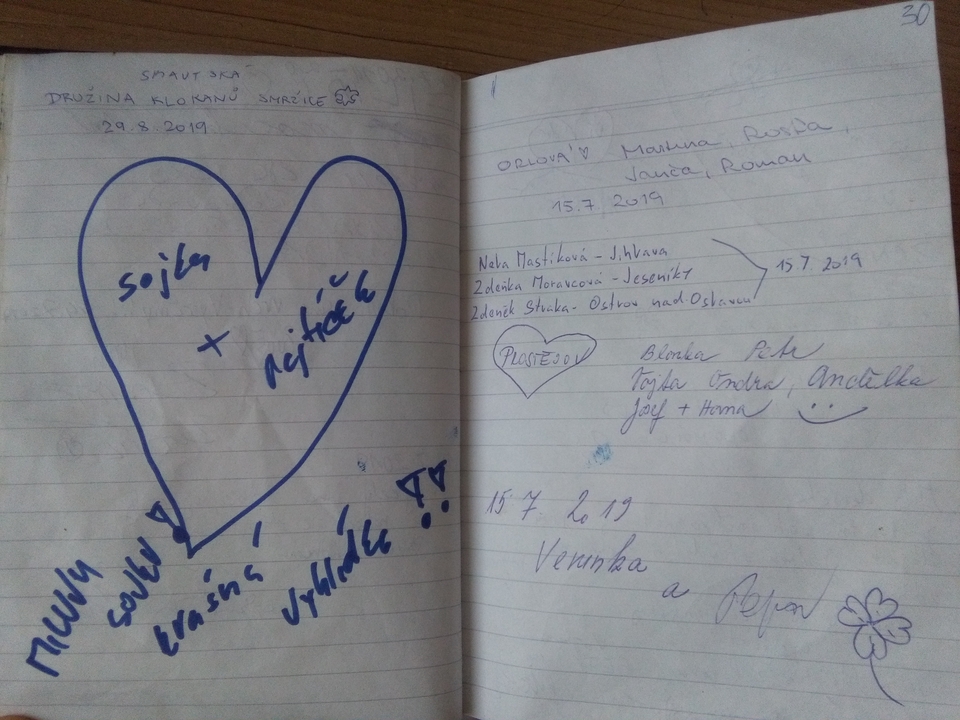 DRUŽINA KLOKANŮ SMRŽICE
29.8.2019
sojka
+
rejžíček
MILUJU
SOVJEV!
krásná
vyhlídka !!
30
ORLOVÁ Martina, Rosťa,
Janča, Roman
15.7. 2019
Nela Mastíková - Jihlava
Zdeňka Moravcová - Jeseníky
Zdeněk Straka - Ostrov nad Oslavou
15.7. 2019
PROSTĚJOV
Blanka Petr
Vojta Ondra, Andělka
Josef + Hana
15 7. 2019
Verunka
a Pepa